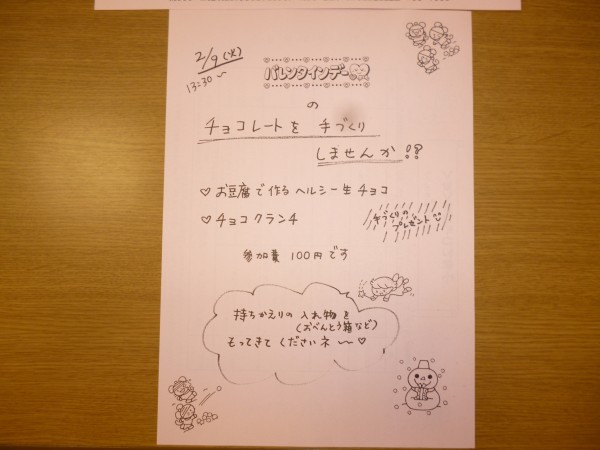 2/9(火)
13:30〜
バレンタインデー
の
チョコレートを 手づくり
しませんか!?
♡お豆腐で作るヘルシー生チョコ
♡チョコクランチ
手づくりの
プレゼント
参加費 100円です
持ちかえりの 入れ物を
(おべんとう箱など)
もってきて くださいネ〜〜♡